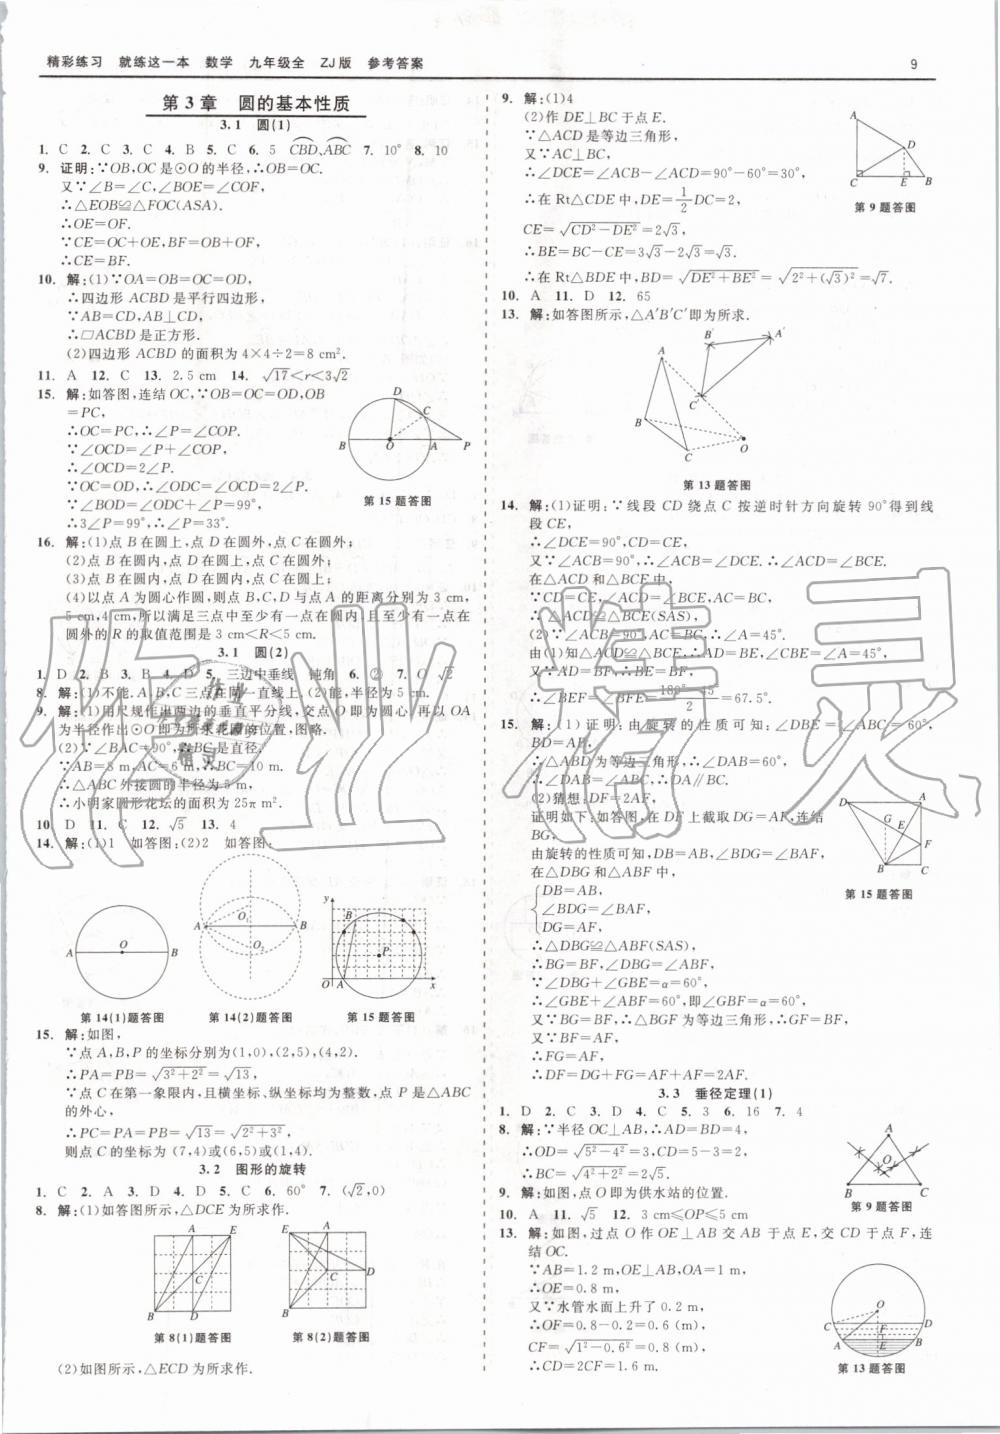 精彩练习 就练这一本 数学 九年级全 ZJ版 参考答案
9
第3章 圆的基本性质
3.1 圆(1)
1. C 2. C 3. C 4. B 5. C 6. 5 CBD,ABC 7. 10° 8. 10
9. 证明:∵OB,OC是⊙O的半径,∴OB=OC.
又∵∠B=∠C,∠BOE=∠COF,
∴△EOB≌△FOC(ASA).
∴OE=OF.
∵CE=OC+OE,BF=OB+OF,
∴CE=BF.
10. 解:(1)∵OA=OB=OC=OD,
∴四边形ACBD是平行四边形,
∵AB=CD,AB⊥CD,
∴□ACBD是正方形.
(2)四边形ACBD的面积为4×4÷2=8 cm².
11. A 12. C 13. 2.5 cm 14. √17<r<3√2
15. 解:如答图,连结OC,∵OB=OC=OD,OB
=PC,
∴OC=PC,∴∠P=∠COP.
∵∠OCD=∠P+∠COP,
∴∠OCD=2∠P.
∵OC=OD,∴∠ODC=∠OCD=2∠P,
∵∠BOD=∠ODC+∠P=99°,
∴3∠P=99°,∴∠P=33°.
D
C
B O A P
第15题答图
16. 解:(1)点B在圆上,点D在圆外,点C在圆外;
(2)点B在圆内,点D在圆上,点C在圆外;
(3)点B在圆内,点D在圆内,点C在圆上;
(4)以点A为圆心作圆,则点B,C,D与点A的距离分别为3 cm,
5 cm,4 cm,所以满足三点中至少有一点在圆内,且至少有一点在
圆外的R的取值范围是3 cm<R<5 cm.
3.1 圆(2)
1. D 2. B 3. B 4. D 5. 三边中垂线 钝角 6. ② 7. O √2
8. 解:(1)不能.A,B,C三点在同一直线上.(2)能,半径为5 cm.
9. 解:(1)用尺规作出两边的垂直平分线,交点O即为圆心,再以OA
为半径作出⊙O即为所求花圃的位置,图略.
(2)∵∠BAC=90°,∴BC是直径.
∵AB=8 m,AC=6 m,∴BC=10 m.
∴△ABC外接圆的半径为5 m,
∴小明家圆形花坛的面积为25π m².
10. D 11. C 12. √5 13. 4
14. 解:(1)1 如答图:(2)2 如答图:
A O B
第14(1)题答图
O₁
A B
O₂
第14(2)题答图
y
B
P
O A x
第15题答图
15. 解:如图,
∵点A,B,P的坐标分别为(1,0),(2,5),(4,2).
∴PA=PB=√3²+2²=√13,
∵点C在第一象限内,且横坐标、纵坐标均为整数,点P是△ABC
的外心,
∴PC=PA=PB=√13=√2²+3²,
则点C的坐标为(7,4)或(6,5)或(1,4).
3.2 图形的旋转
1. C 2. A 3. A 4. D 5. C 6. 60° 7. (√2,0)
8. 解:(1)如答图所示,△DCE为所求作.
A E
C
B D
第8(1)题答图
E A
C D
B
第8(2)题答图
(2)如答图所示,△ECD为所求作.
9. 解:(1)4
(2)作DE⊥BC于点E.
∵△ACD是等边三角形,
又∵AC⊥BC,
∴∠DCE=∠ACB-∠ACD=90°-60°=30°,
∴在Rt△CDE中,DE=1/2DC=2,
CE=√CD²-DE²=2√3,
∴BE=BC-CE=3√3-2√3=√3.
∴在Rt△BDE中,BD=√DE²+BE²=√2²+(√3)²=√7.
A
D
C E B
第9题答图
10. A 11. D 12. 65
13. 解:如答图所示,△A'B'C'即为所求.
B' A'
A
C'
B
C O
第13题答图
14. 解:(1)证明:∵线段CD绕点C按逆时针方向旋转90°得到线
段CE,
∴∠DCE=90°,CD=CE,
又∵∠ACB=90°,∴∠ACB=∠DCE.∴∠ACD=∠BCE.
在△ACD和△BCE中,
∵CD=CE,∠ACD=∠BCE,AC=BC,
∴△ACD≌△BCE(SAS),
(2)∵∠ACB=90°,AC=BC,∴∠A=45°.
由(1)知△ACD≌△BCE,∴AD=BE,∠CBE=∠A=45°,
又∵AD=BF,∴BE=BF,
∴∠BEF=∠BFE=180°-45°/2=67.5°.
15. 解:(1)证明:由旋转的性质可知:∠DBE=∠ABC=60°,
BD=AB,
∴△ABD为等边三角形,∴∠DAB=60°,
∴∠DAB=∠ABC,∴DA∥BC.
(2)猜想:DF=2AF,
证明如下:如答图,在DF上截取DG=AF,连结
BG,
由旋转的性质可知,DB=AB,∠BDG=∠BAF,
在△DBG和△ABF中,
DB=AB,
∠BDG=∠BAF,
DG=AF,
∴△DBG≌△ABF(SAS),
∴BG=BF,∠DBG=∠ABF,
∵∠DBG+∠GBE=α=60°,
∴∠GBE+∠ABF=60°,即∠GBF=α=60°,
又∵BG=BF,∴△BGF为等边三角形,∴GF=BF,
又∵BF=AF,
∴FG=AF,
∴DF=DG+FG=AF+AF=2AF.
D A
G E
F
B C
第15题答图
3.3 垂径定理(1)
1. D 2. C 3. D 4. C 5. 3 6. 16 7. 4
8. 解:∵半径OC⊥AB,∴AD=BD=4,
∴OD=√5²-4²=3,CD=5-3=2,
∴BC=√4²+2²=2√5.
9. 解:如图,点O即为供水站的位置.
A
O
B C
第9题答图
10. A 11. √5 12. 3 cm≤OP≤5 cm
13. 解:如图,过点O作OE⊥AB交AB于点E,交CD于点F,连
结OC.
∵AB=1.2 m,OE⊥AB,OA=1 m,
∴OE=0.8 m,
又∵水管水面上升了0.2 m,
∴OF=0.8-0.2=0.6(m),
CF=√1²-0.6²=0.8(m),
∴CD=2CF=1.6 m.
O
C F D
A E B
第13题答图
作业精灵